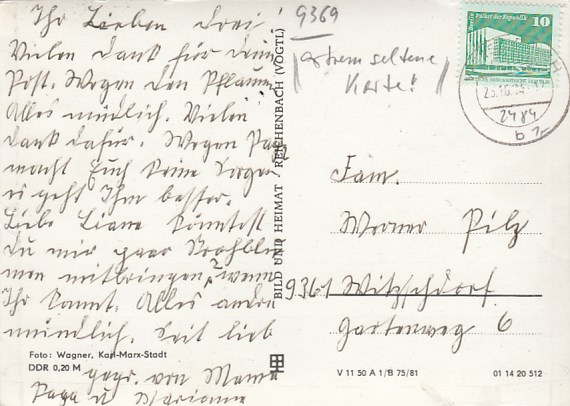 Ihr Lieben drei!
Vielen Dank für Deine
Post. Wegen den Pflaumen
Alles mündlich. Vielen
Dank dafür. Wegen Papa
macht Euch keine Sorgen
es geht Ihm besser.
Liebe Liane könntest
Du mir paar Strohblu
men mitbringen, wenn
Ihr kommt. Alles andre
mündlich. Seit lieb
gegr. von Mama
Papa u Marianne
Foto: Wagner, Karl-Marx-Stadt
DDR 0,20 M
BILD UND HEIMAT REICHENBACH (VOGTL)
9369
extrem seltene
Karte!
10
2484
Fam.
Werner Pilz
9361 Witzschdorf
Gartenweg 6
V 11 50 A 1/B 75/81
01 14 20 512